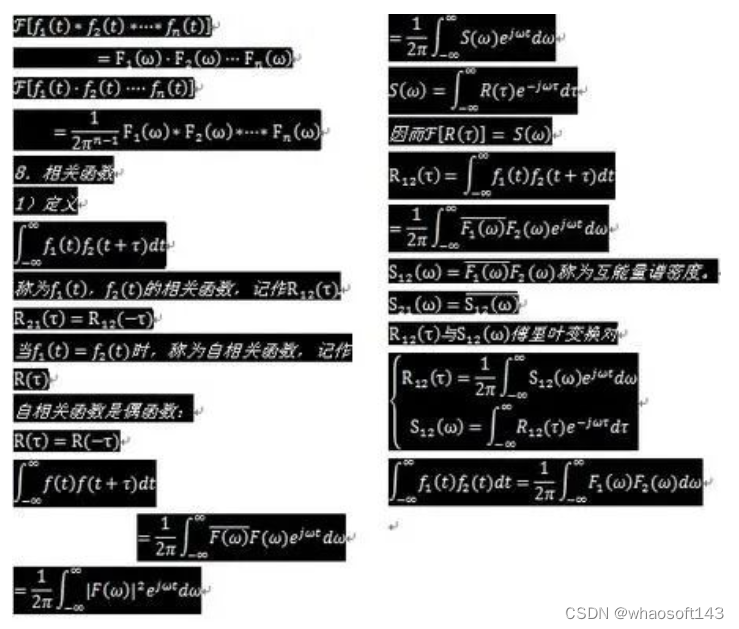 ℱ[f₁(t) * f₂(t) *⋯* fₙ(t)]
= F₁(ω) · F₂(ω) ⋯ Fₙ(ω)
ℱ[f₁(t) · f₂(t) ⋯· fₙ(t)]
= 1/(2πⁿ⁻¹) F₁(ω) * F₂(ω) *⋯* Fₙ(ω)
8. 相关函数
1）定义
∫_{-∞}^{∞} f₁(t)f₂(t + τ)dt
称为f₁(t)，f₂(t)的相关函数，记作R₁₂(τ)
R₂₁(τ) = R₁₂(−τ)
当f₁(t) = f₂(t)时，称为自相关函数，记作
R(τ)
自相关函数是偶函数：
R(τ) = R(−τ)
∫_{-∞}^{∞} f(t)f(t + τ)dt
= 1/2π ∫_{-∞}^{∞} \overline{F(ω)}F(ω)e^{jωt}dω
= 1/2π ∫_{-∞}^{∞} |F(ω)|²e^{jωt}dω
= 1/2π ∫_{-∞}^{∞} S(ω)e^{jωt}dω
S(ω) = ∫_{-∞}^{∞} R(τ)e^{−jωτ}dτ
因而ℱ[R(τ)] = S(ω)
R₁₂(τ) = ∫_{-∞}^{∞} f₁(t)f₂(t + τ)dt
= 1/2π ∫_{-∞}^{∞} \overline{F₁(ω)}F₂(ω)e^{jωt}dω
S₁₂(ω) = \overline{F₁(ω)}F₂(ω)称为互能量谱密度。
S₂₁(ω) = \overline{S₁₂(ω)}
R₁₂(τ)与S₁₂(ω)傅里叶变换对
R₁₂(τ) = 1/2π ∫_{-∞}^{∞} S₁₂(ω)e^{jωt}dω
S₁₂(ω) = ∫_{-∞}^{∞} R₁₂(τ)e^{−jωτ}dτ
∫_{-∞}^{∞} f₁(t)f₂(t)dt = 1/2π ∫_{-∞}^{∞} F₁(ω)F₂(ω)dω
CSDN @whaosoft143